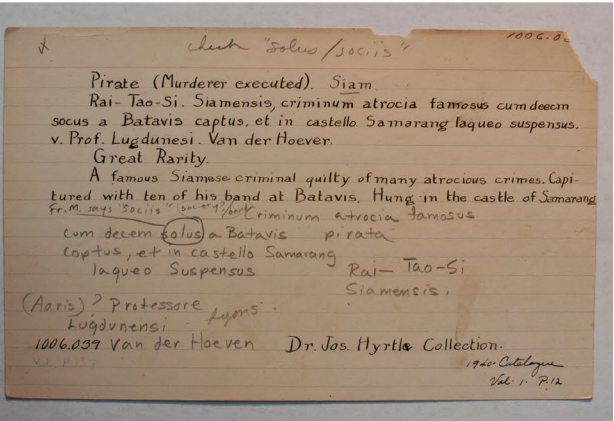 check "solus/sociis"
1006.0
Pirate (Murderer executed). Siam
Rai-Tao-Si. Siamensis, criminum atrocia famosus cum decem
socus a Batavis captus, et in castello Samarang laqueo suspensus.
v. Prof. Lugdunesi. Van der Hoever.
Great Rarity.
A famous Siamese criminal guilty of many atrocious crimes. Cap-
tured with ten of his band at Batavis. Hung in the castle of Samarang
Fr. M. says "sociis" criminum atrocia famosus
cum decem solus a Batavis pirata
captus, et in castello Samarang
laqueo Suspensus Rai-Tao-Si
Siamensis.
(Aaris)? Professore
Lugdunensi Lyons.
1006.039 Van der Hoeven Dr. Jos. Hyrtle Collection.
1940 Catalogue
Vol. 1. P.12